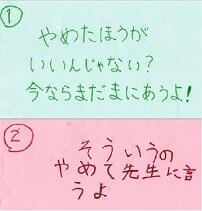 ①
やめたほうが
いいんじゃない?
今ならまだまにあうよ!
②
そういうの
やめて先生に言
うよ